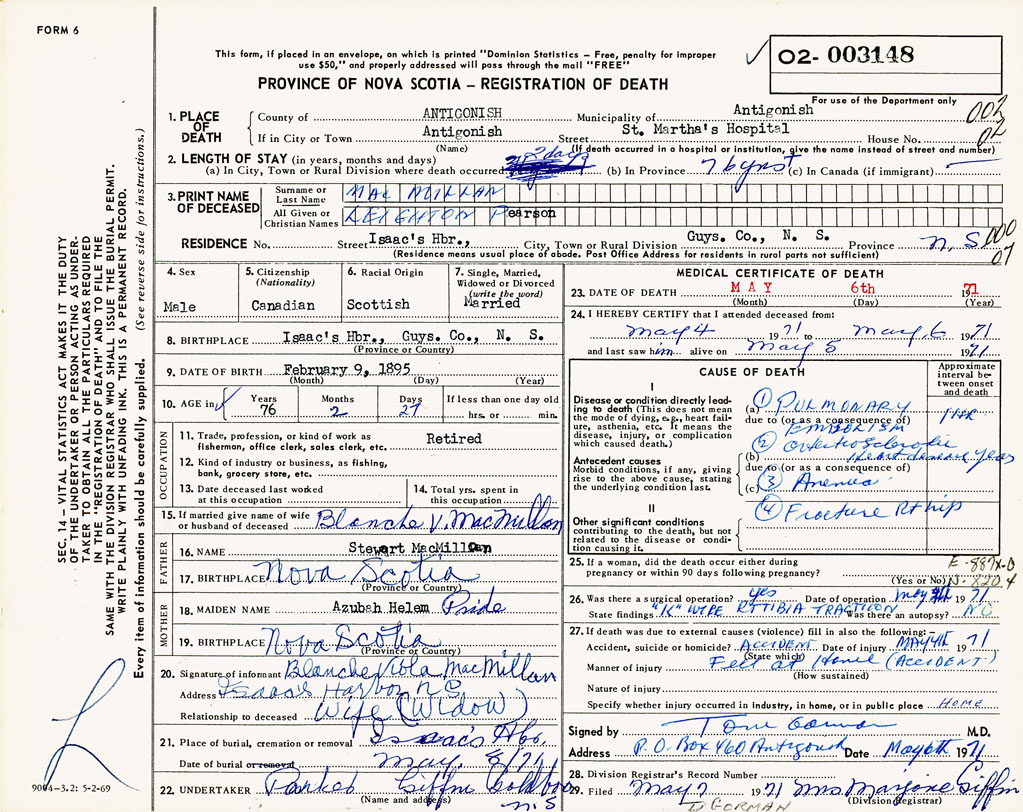 FORM 6
This form, if placed in an envelope, on which is printed "Dominion Statistics – Free, penalty for improper
use $50," and properly addressed will pass through the mail "FREE"
PROVINCE OF NOVA SCOTIA – REGISTRATION OF DEATH
02- 003148
For use of the Department only
002
02
1. PLACE OF DEATH
County of ANTIGONISH Municipality of Antigonish
If in City or Town Antigonish Street St. Martha's Hospital House No.
(Name) (If death occurred in a hospital or institution, give the name instead of street and number)
2. LENGTH OF STAY (in years, months and days)
(a) In City, Town or Rural Division where death occurred 2 days (b) In Province 76 yrs (c) In Canada (if immigrant)
3. PRINT NAME OF DECEASED
Surname or Last Name MAC MILLAN
All Given or Christian Names LEIGHTON Pearson
RESIDENCE No. Street Isaac's Hbr., City, Town or Rural Division Guys. Co., N. S. Province N.S.
(Residence means usual place of abode. Post Office Address for residents in rural parts not sufficient)
000
07
4. Sex
Male
5. Citizenship (Nationality)
Canadian
6. Racial Origin
Scottish
7. Single, Married, Widowed or Divorced (write the word)
Married
8. BIRTHPLACE Isaac's Hbr., Guys. Co., N. S.
(Province or Country)
9. DATE OF BIRTH February 9, 1895
(Month) (Day) (Year)
10. AGE in Years 76 Months 2 Days 27 If less than one day old hrs. or min.
OCCUPATION
11. Trade, profession, or kind of work as fisherman, office clerk, sales clerk, etc. Retired
12. Kind of industry or business, as fishing, bank, grocery store, etc.
13. Date deceased last worked at this occupation
14. Total yrs. spent in this occupation
15. If married give name of wife or husband of deceased Blanche V. MacMillan
FATHER
16. NAME Stewart MacMillan
17. BIRTHPLACE Nova Scotia
(Province or Country)
MOTHER
18. MAIDEN NAME Azubah Helem Pride
19. BIRTHPLACE Nova Scotia
(Province or Country)
20. Signature of informant Blanche Viola MacMillan
Address Isaac's Harbor N S
Relationship to deceased Wife (Widow)
21. Place of burial, cremation or removal Isaac's Hbr.
Date of burial or removal May 8/71
22. UNDERTAKER Parker Giffin Goldboro
(Name and address) N.S
MEDICAL CERTIFICATE OF DEATH
23. DATE OF DEATH MAY 6th 1971
(Month) (Day) (Year)
24. I HEREBY CERTIFY that I attended deceased from:
May 4 1971 to May 6 1971
and last saw him alive on May 5 1971
CAUSE OF DEATH
Approximate interval between onset and death
I
Disease or condition directly leading to death (This does not mean the mode of dying, e.g., heart failure, asthenia, etc. It means the disease, injury, or complication which caused death.)
(a) ① PULMONARY EMBOLISM 1 HR
due to (or as a consequence of)
Antecedent causes
Morbid conditions, if any, giving rise to the above cause, stating the underlying condition last.
(b) ② Arteriosclerotic Heart disease years
due to (or as a consequence of)
(c) ③ Anemia
II
Other significant conditions contributing to the death, but not related to the disease or condition causing it.
④ Fracture Rt hip
25. If a woman, did the death occur either during pregnancy or within 90 days following pregnancy?
(Yes or No)
E-887X-0
N-820.4
26. Was there a surgical operation? yes Date of operation May 4th 1971
State findings "K" WIRE RT TIBIA TRACTION Was there an autopsy? NO
27. If death was due to external causes (violence) fill in also the following:
Accident, suicide or homicide? ACCIDENT Date of injury MAY 4th 1971
(State which)
Manner of injury Fell at Home (ACCIDENT)
(How sustained)
Nature of injury
Specify whether injury occurred in industry, in home, or in public place HOME
Signed by Tom Gorman M.D.
Address P.O. Box 460 Antigonish Date May 6th 1971
28. Division Registrar's Record Number
29. Filed May 7 1971 Mrs Marjorie Giffin
(Division Registrar)
GORMAN
SEC. 14 – VITAL STATISTICS ACT MAKES IT THE DUTY
OF THE UNDERTAKER OR PERSON ACTING AS UNDER-
TAKER TO OBTAIN ALL THE PARTICULARS REQUIRED
IN THE "REGISTRATION OF DEATH" AND TO FILE THE
SAME WITH THE DIVISION REGISTRAR WHO SHALL ISSUE THE BURIAL PERMIT.
WRITE PLAINLY WITH UNFADING INK. THIS IS A PERMANENT RECORD.
Every item of information should be carefully supplied. (See reverse side for instructions.)
9004-3.2: 5-2-69